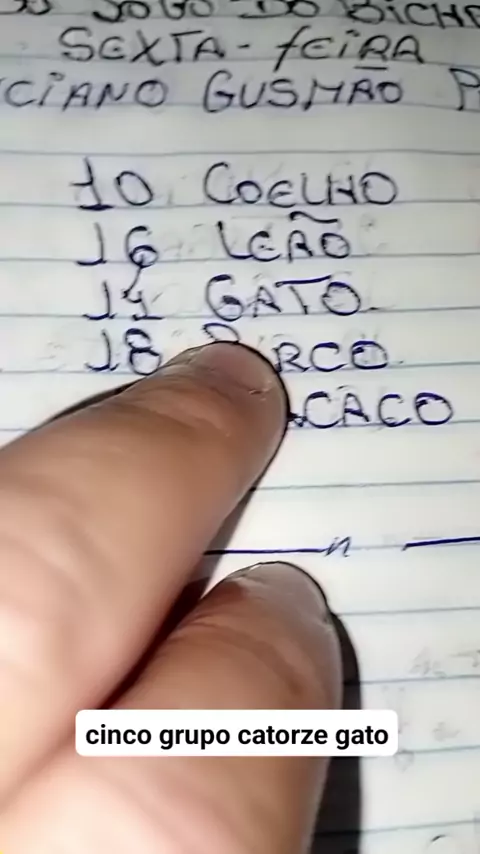 JOGO DO BICHO
SEXTA-feiRA
CIANO GUSMÃO P
10 COELHO
16 LEÃO
14 GATO
18 RCO
CACO
cinco grupo catorze gato